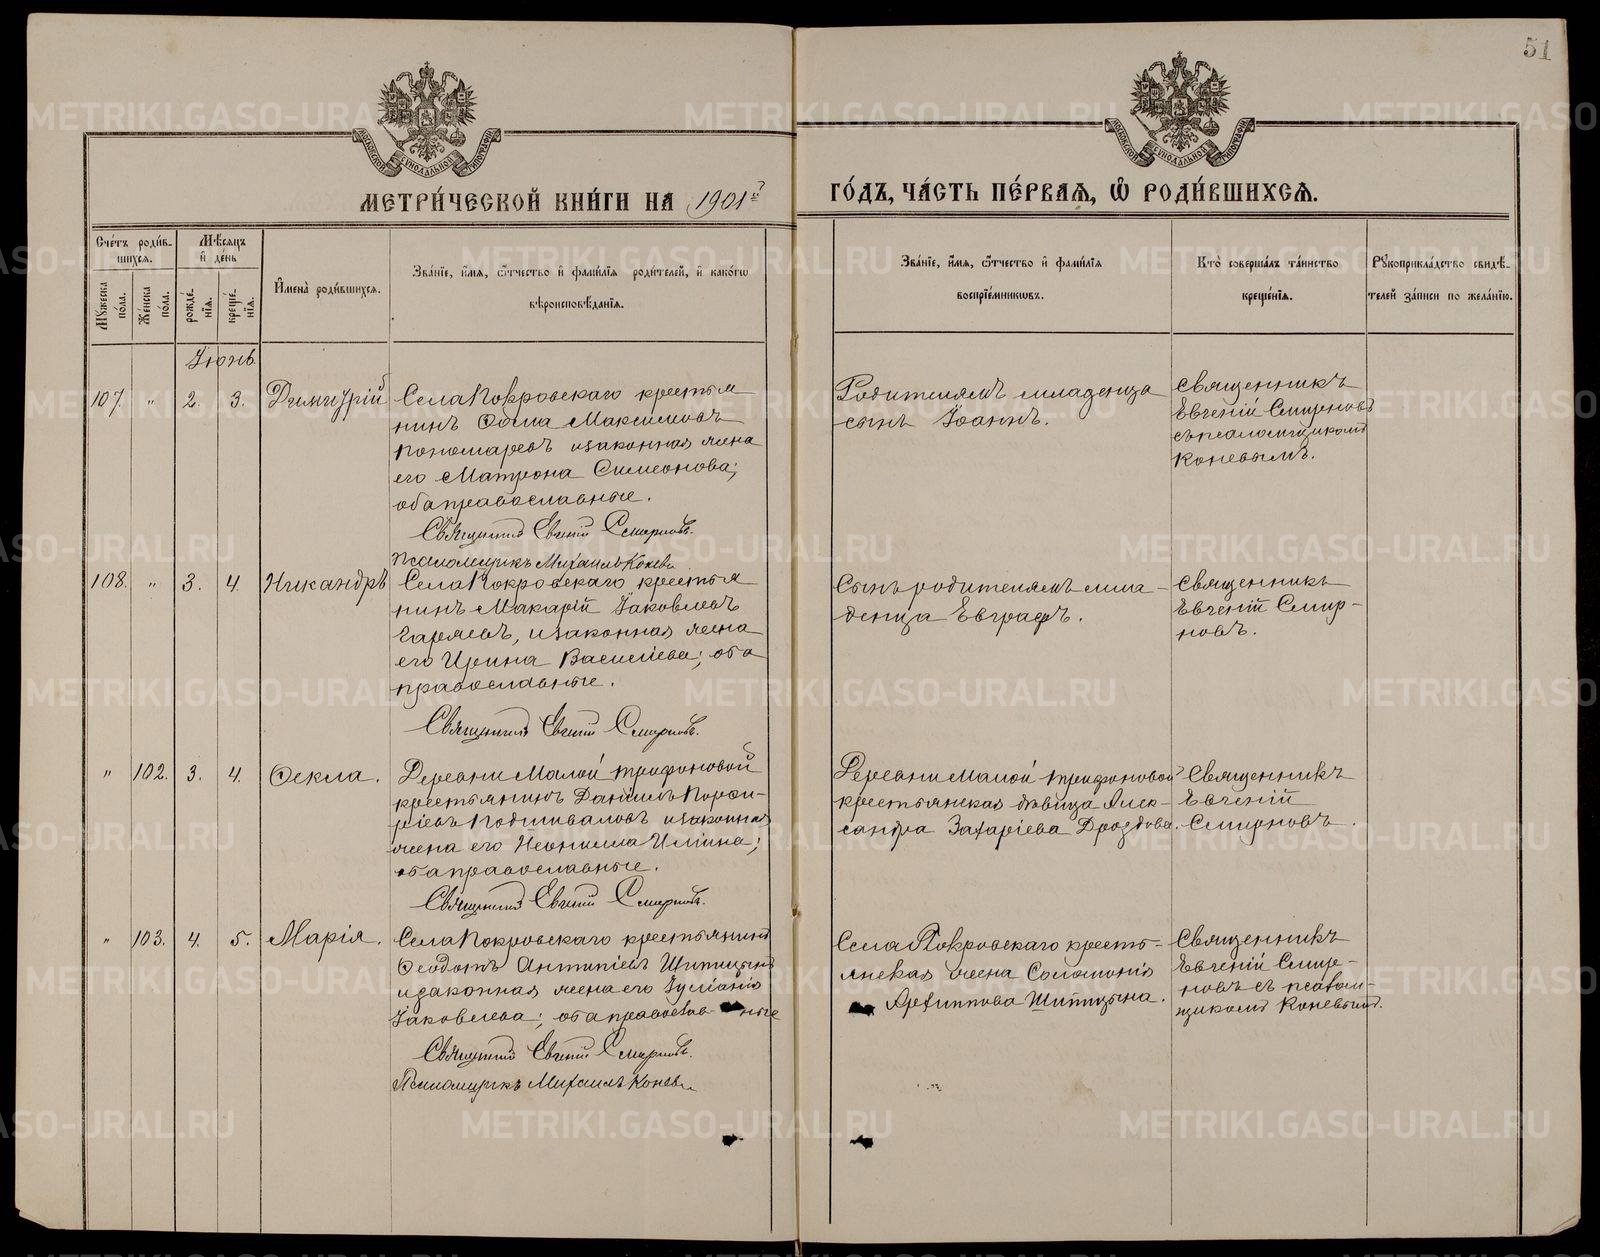 51
МЕТРИ́ЧЕСКОЙ КНИ́ГИ НА 1901й ГО́ДЪ, ЧА́СТЬ ПЕ́РВАѦ, Ѡ҆ РОДИ́ВШИХСѦ.
Сче́тъ роди́в-
шихсѧ.
Мꙋжеска по́ла.
Же́нска по́ла.
Мѣ́сѧцъ
и҆ де́нь
рожде́-
нїѧ.
креще́-
нїѧ.
И҆мена̀ роди́вшихсѧ.
Зва́нїе, и҆́мѧ, ѻ҆́тчество и҆ фами́лїѧ роди́телей, и҆ како́гѡ
вѣроисповѣ́данїѧ.
Зва́нїе, и҆́мѧ, ѻ҆́тчество и҆ фами́лїѧ
воспрїе́мникѡвъ.
Кто̀ соверша́лъ та́инство
креще́нїѧ.
Рꙋкоприкла́дство свидѣ́-
телей за́писи по жела́нїю.
Іюнь
107. " 2. 3. Димитрій
Села Покровскаго крестья
нинъ Ѳома Максимовъ
Пономаревъ и законная жена
его Матрона Симеонова;
оба православные.
Священникъ Евгеній Смирновъ.
Псаломщикъ Михаилъ Коневъ
Родителямъ младенца
сынъ Іоаннъ.
Священникъ
Евгеній Смирновъ
съ псаломщикомъ
Коневымъ.
108. " 3. 4. Никандръ
Села Покровскаго крестья
нинъ Макарій Іаковлевъ
Гаряевъ, и законная жена
его Ирина Василіева; оба
православные.
Священникъ Евгеній Смирновъ.
Сынъ родителямъ мла-
денца Евграфъ.
Священникъ
Евгеній Смир-
новъ.
" 102. 3. 4. Ѳекла.
Деревни Малой Трифоновой
крестьянинъ Даніилъ Порфи-
ріевъ Подшиваловъ и законная
жена его Неонилла Иліина;
оба православные.
Священникъ Евгеній Смирновъ.
Деревни Малой Трифоновой
крестьянская дѣвица Алек-
сандра Захаріева Дроздова.
Священникъ
Евгеній
Смирновъ.
" 103. 4. 5. Марія.
Села Покровскаго крестьянинъ
Ѳеодотъ Антипіевъ Шипицынъ
и законная жена его Іуліанія
Іаковлева; оба православные
Священникъ Евгеній Смирновъ.
Псаломщикъ Михаилъ Коневъ
Села Покровскаго кресть-
янская жена Соломонія
Архиппова Шипицына.
Священникъ
Евгеній Смир-
новъ съ псалом-
щикомъ Коневымъ.
METRIKI.GASO-URAL.RU